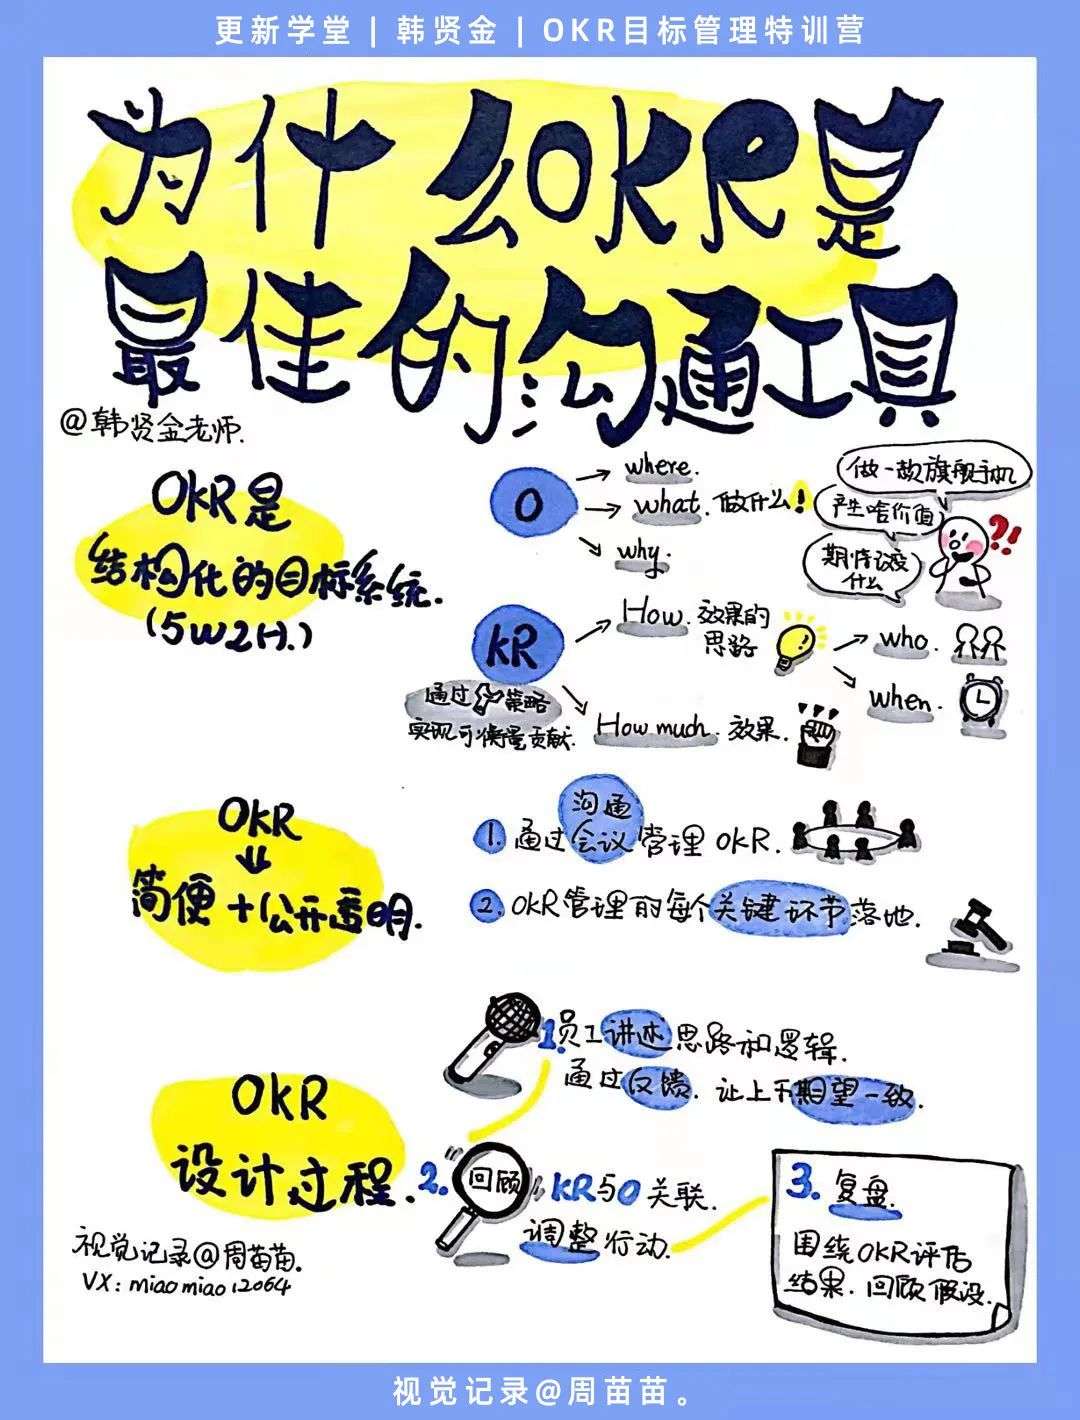 更新学堂 | 韩贤金 | OKR目标管理特训营
为什么OKR是
最佳的沟通工具
@韩贤金老师.
OKR是
结构化的目标系统.
(5W2H.)
O
where.
what. 做什么!
why.
做一款旗舰手机
产生啥价值
期待改变
什么
?!
KR
通过策略
实现可衡量贡献.
How. 效果的
思路
who.
when.
How much. 效果.
OKR
简便+公开透明.
1. 通过沟通
会议管理OKR.
2. OKR管理的每个关键环节落地.
OKR
设计过程.
1. 员工讲述思路和逻辑.
通过反馈. 让上下期望一致.
2. 回顾 KR与O关联.
调整行动.
3. 复盘.
围绕OKR评估
结果. 回顾假设.
视觉记录@周苗苗.
VX: miaomiao12064
视觉记录@周苗苗。